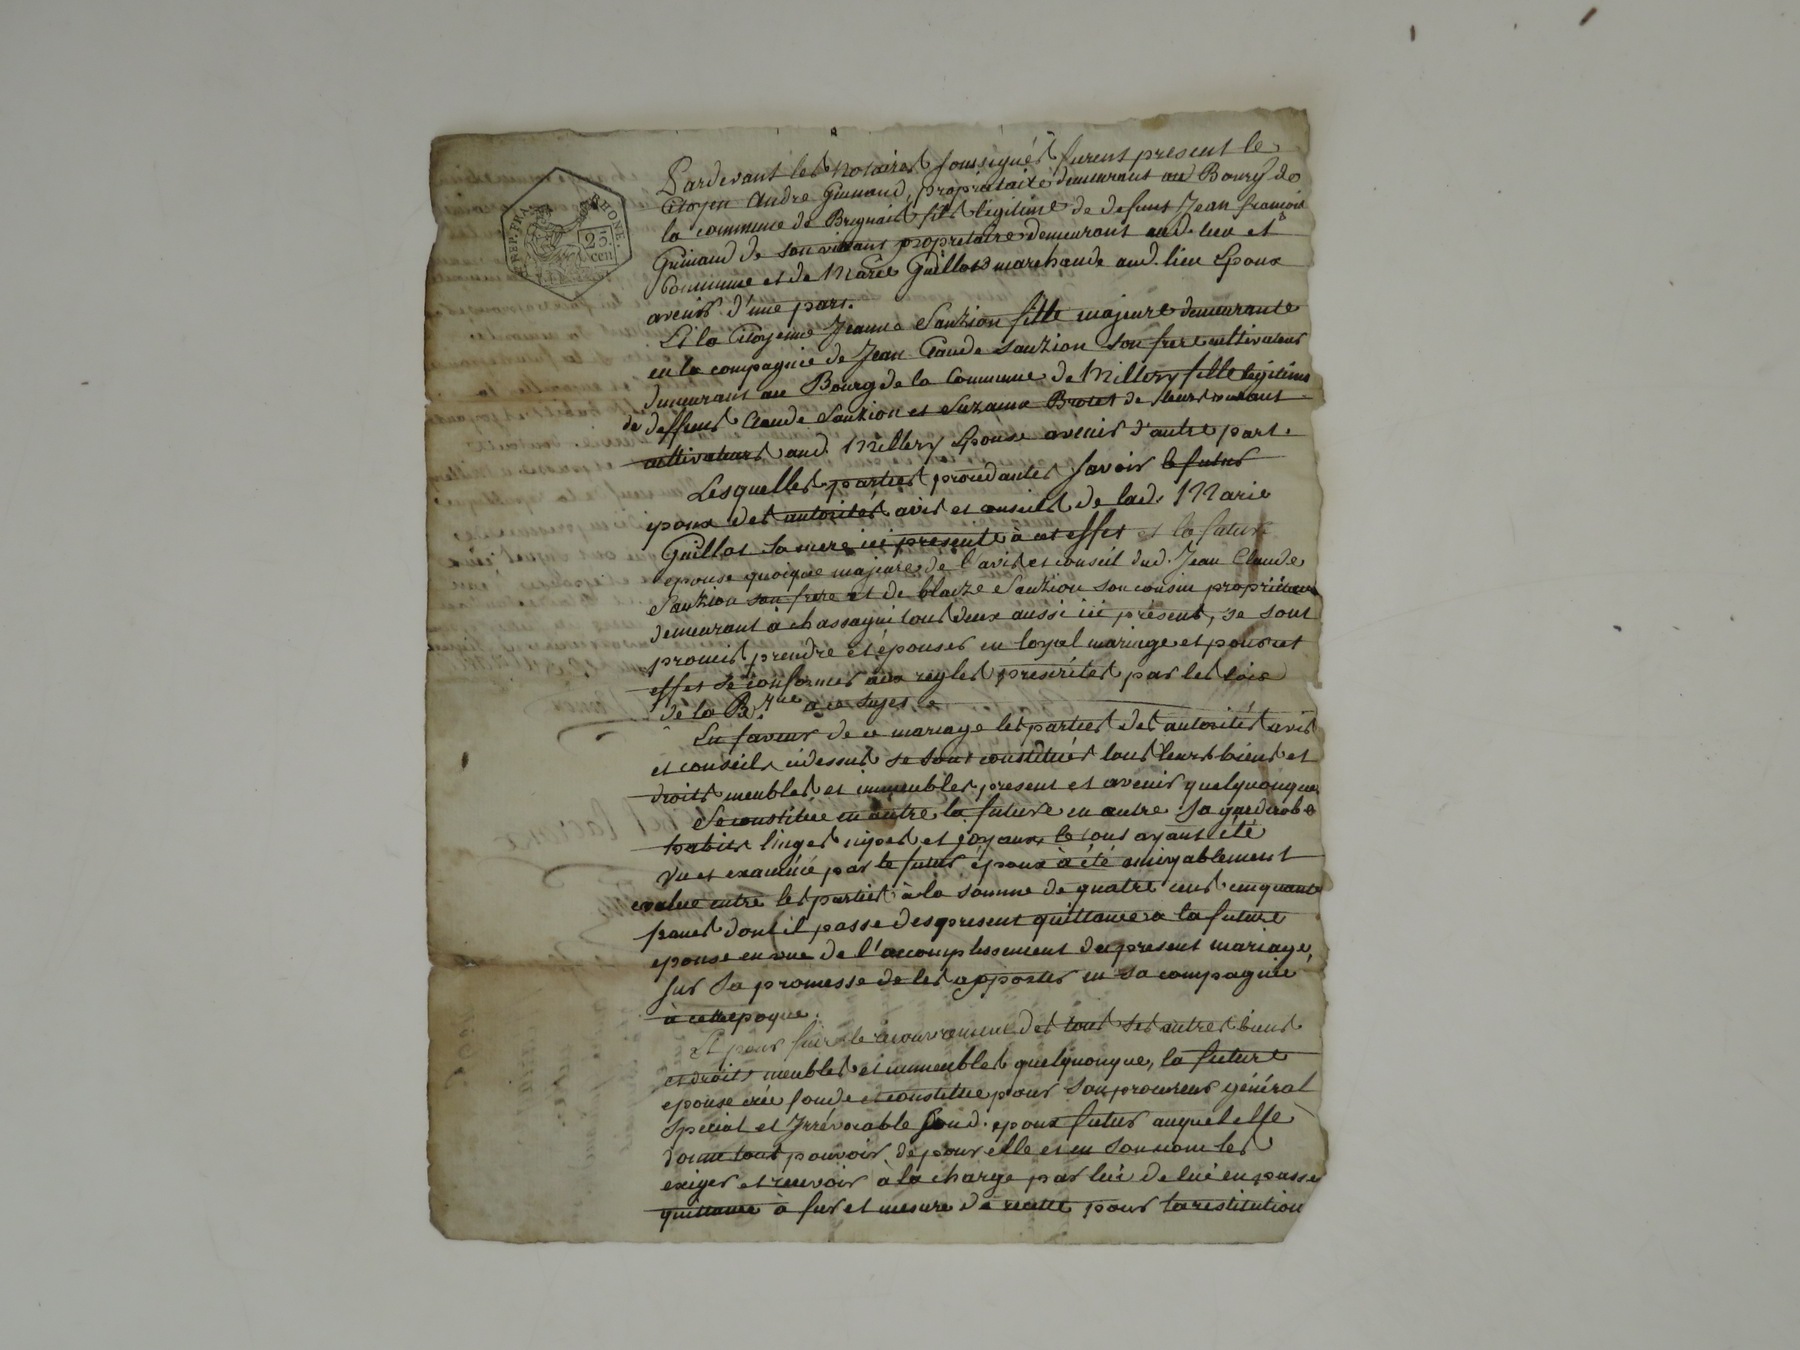 REP. FRA. RHONE.
25.
cen
Pardevant les Notaires soussignés furent present le
Citoyen André Guinand, propriétaire demeurant au Bourg de
la commune de Brignais fils légitime de defunt Jean francois
Guinand de son vivant propriétaire demeurant aud. lieu et
Commune et de Marie Guillot marchande aud. lieu Epoux
avenir d'une part.
Et la Citoyenne Jeanne Sauzion fille majeure demeurante
en la compagnie de Jean Claude Sauzion son frere cultivateur
demeurant au Bourg de la Commune de Millery fille légitime
de deffunt Claude Sauzion et Suzanne de leurs vivant
cultivateurs aud. Millery Epouse avenir d'autre part.
Lesquelles parties procedantes savoir le futur
epoux des autorités avis et conseils de lad. Marie
Guillot sa mere ici presente à cet effet et la future
epouse quoique majeure de l'avis et conseil dud. Jean Claude
Sauzion son frere et de blaize Sauzion son cousin propriétaire
demeurant à chassagni tous deux aussi ici présents, se sont
promis prendre et épouser en loyal mariage et pour cet
effet se conformer aux regles prescrites par les lois
de la R.que à ce sujet
En faveur de ce mariage les parties des autorités avis
et conseils cidessus se sont constitués tous leurs biens et
droits meubles et immeubles present et avenir quelquonque
Se constitue en outre la future en outre sa garderobe
habits linges nipes et joyaux, le tout ayant été
vu et examiné par le futur époux à été amiyablement
evalué entre les parties à la somme de quatre cent cinquante
francs dont il passe des present quittance a la future
epouse en vue de l'accomplissement du present mariage,
sur sa promesse de les apporter en sa compagnie
à cette epoque.
Et pour faire le recouvrement des tous ses autres biens
et droits meubles et immeubles quelquonque, la future
epouse crée fonde et constitue pour son procureur général
spécial et Irrévocable sond. epoux futur auquel elle
donne tout pouvoir de pour elle et en son nom les
exiger et recevoir à la charge par lui de lui en passer
quittance à fur et mesure de recette pour la restitution